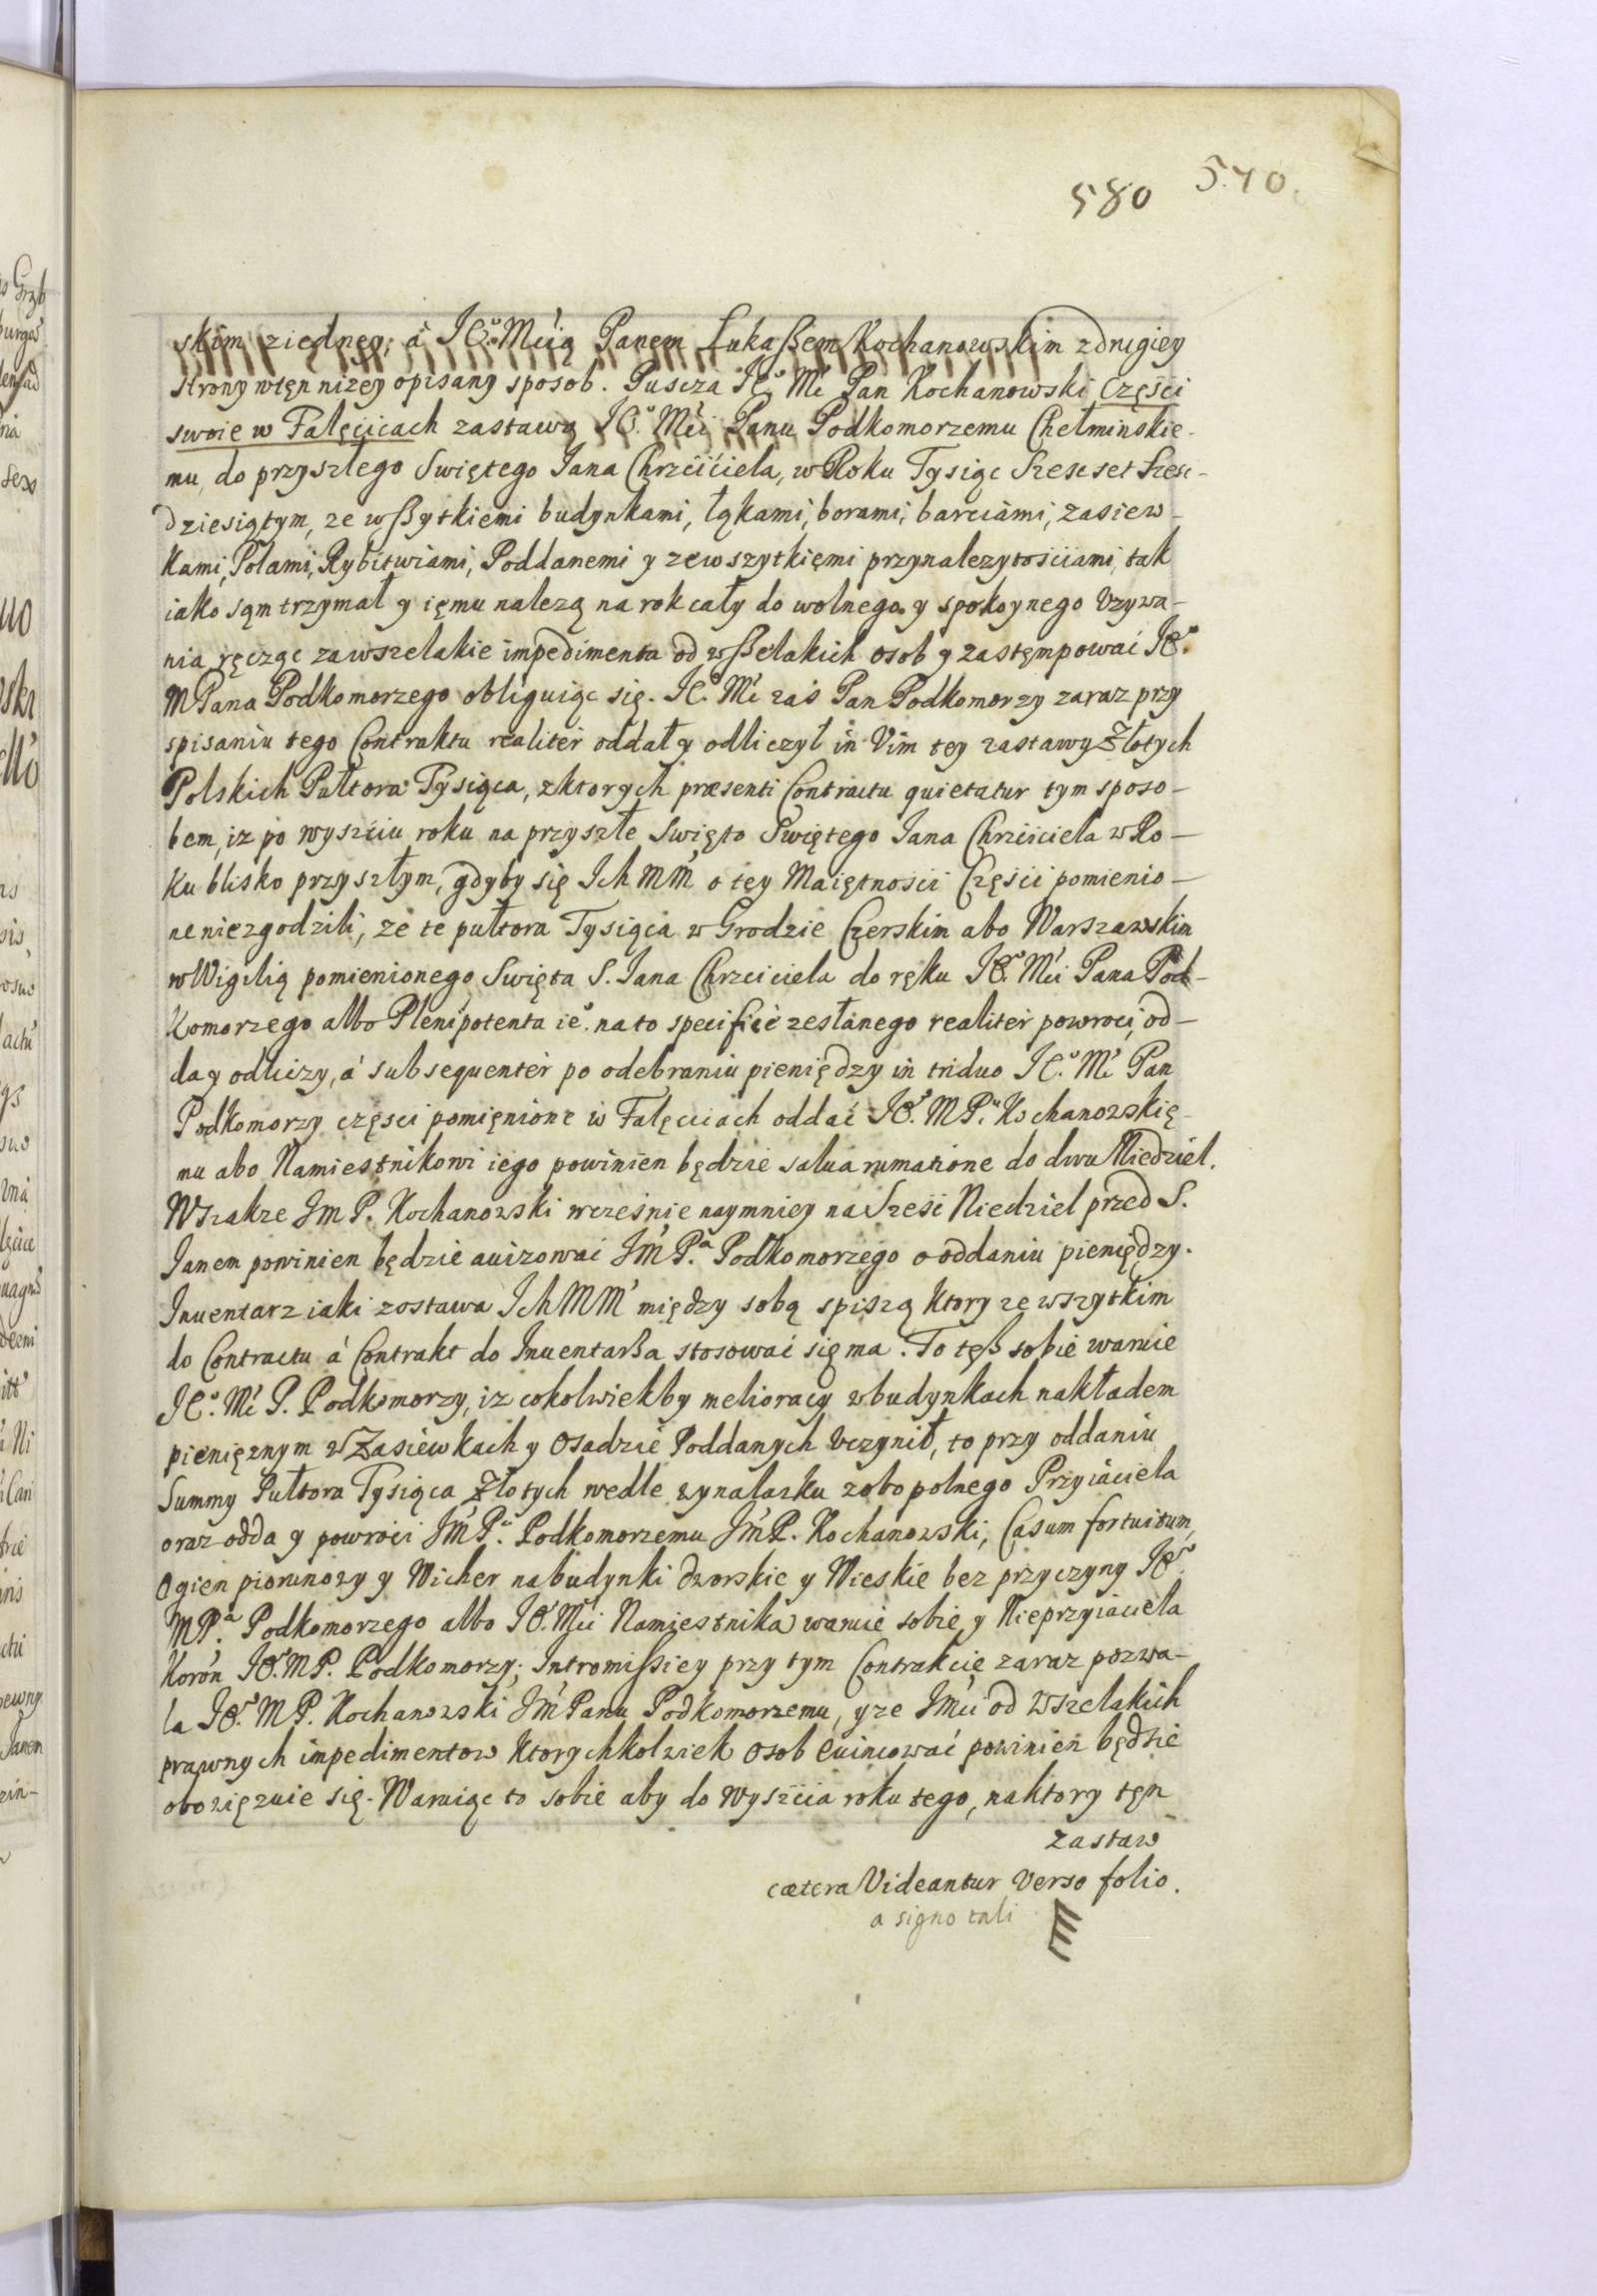 580 540.
skim ziedney, á JE.º Mcią Panem Łukaßem Kochanowskim zdrugiey
strony wtęn niżey opisany sposob. Puscza JE.º Mć Pan Kochanowski Części
swoie w Falęcicach zastawą JE.º Mći Panu Podkomorzemu Chełminskie-
mu, do przyszłego Swiętego Jana Chrzciciela, w Roku Tysiąc Szescset Szesc-
dziesiątym, ze wßytkiemi budynkami, łąkami, borami, barciámi, zasiew-
kami, Polami, Rybitwiami, Poddanemi y zewszytkięmi przynalezytosciami, tak
iako sąm trzymał y ięmu nalezą na rok cały do wolnego y spokoynego Vzywa-
nia ręcząc zawszelakie impedimenta od wßelakich osob y zastęmpowai JE.º
MPana Podkomorzego obliguiąc się. JE.º Mć zaś Pan Podkomorzy zaraz przy
spisaniu tego Contraktu realiter oddał y odliczył in Vim tey zastawy Złotych
Polskich Pułtora Tysiąca, zktorych præsenti Contractu quietatur tym sposo-
bem, iz po wyszciu roku na przyszłe Swięto Swiętego Jana Chrzciciela w Ro-
ku blisko przyszłym, gdyby się Ich MM o tey Maiętności Części pomienio-
ne niezgodzili, ze te pułtora Tysiąca w Grodzie Czerskim abo Warszawskim
w Wigilią pomienionego Swięta S. Jana Chrzciciela do ręku JE.º Mći Pana Pod-
Komorzego albo Plenipotenta ieº. na to specifice zesłanego realiter powroci, od-
da y odliczy, á subsequenter po odebraniu pieniędzy in triduo JE.º Mć Pan
Podkomorzy części pomięnione w Falęcicach oddać JE.º M P.u Kochanowskię-
mu abo Namiestnikowi iego powinien będzie salua rumatione do dwu Niedziel.
Wszakze Jm P. Kochanowski wcześnie naymniey na Sześć Niedziel przed S.
Janem powinien będzie auizować Jm P.a Podkomorzego o oddaniu pieniędzy.
Inuentarz iaki zostawa Ich MM między sobą spiszą ktory ze wszytkim
do Contractu á Contrakt do Inuentarßa stosować się ma. To tęß sobie waruie
JE.º Mć P. Podkomorzy, iz cokolwiekby melioracy w budynkach nakładem
pieniężnym w Zasiewkach y Osadzie Poddanych Vczynił, to przy oddaniu
Summy Pułtora Tysiąca Złotych wedle wynalasku zobopolnego Przyiaciela
oraz odda y powroci Jm P.u Podkomorzemu Jm P. Kochanowski, Casum fortuitum,
Ogien piorunowy y Wicher na budynki dworskie y Wieskie bez przyczyny JE.º
MP.a Podkomorzego albo JE.º Mći Namiestnika waruie sobie, y Nieprzyiaciela
Koron JE.º MP. Podkomorzy; Intromißiey przy tym Contrakcie zaraz pozwa-
la JE.º MP. Kochanowski Jm Panu Podkomorzemu, y ze Jmći od Wszelakich
prawnych impedimentow ktorychkolwiek Osob euincować powinień będzie
obowięzuie się. Waruiąc to sobie aby do wyszcia roku tego, naktory tęn
zastaw
cætera Videantur verso folio.
a signo tali